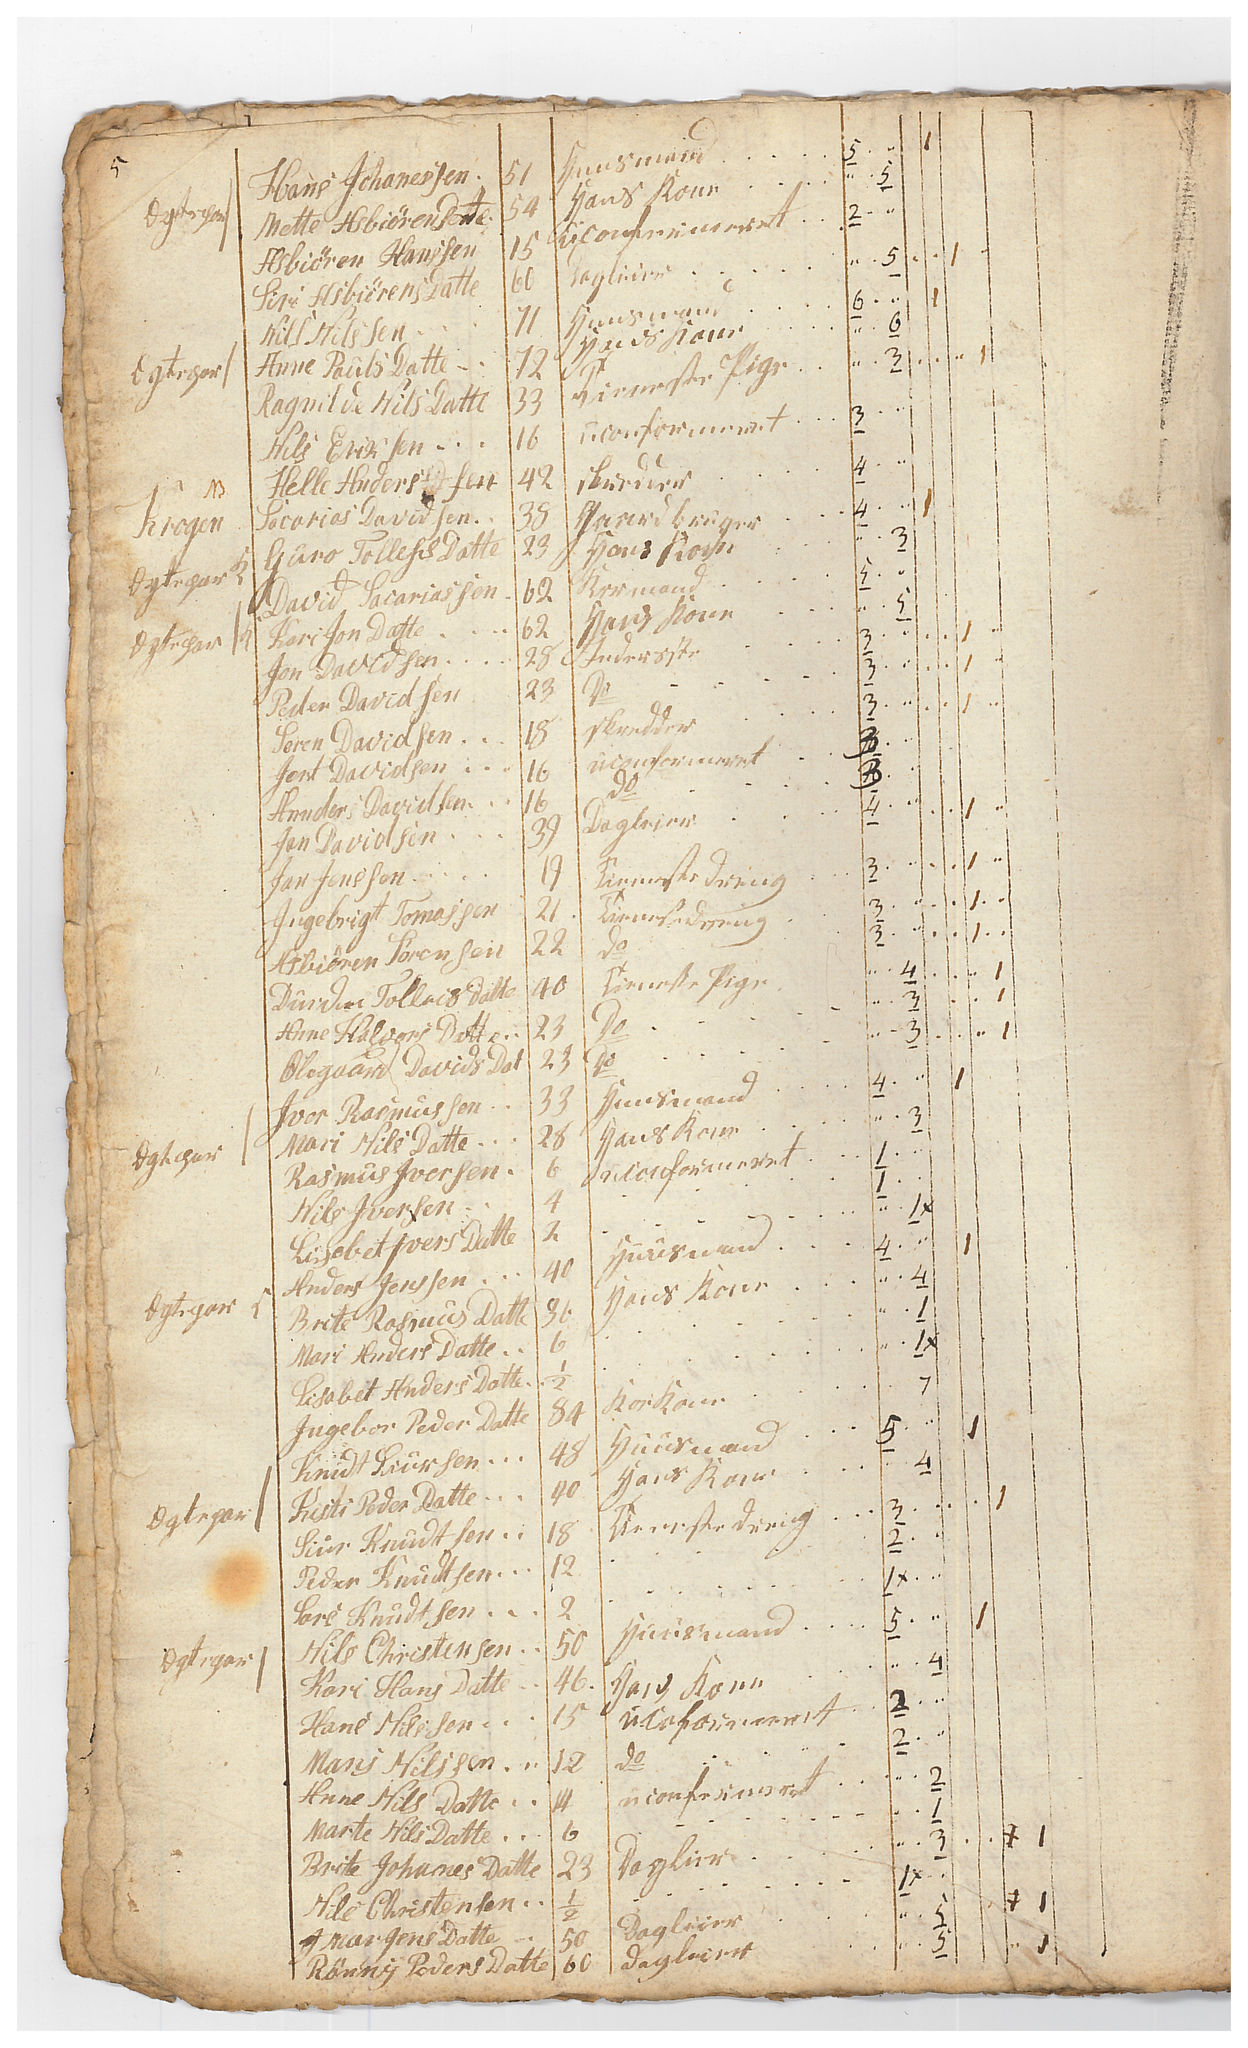 5
Hans Johanessen . 51 Huusmand . . . . . 5 . „ 1
Ægtepar Mette Asbiörens Datte . 54 Hans Kone . . . . „ . 5
Asbiören Hanssen 15 uconfirmeret . . 2 . „
Siri Asbiörens Datte 60 Dagleier . . . . . „ . 5 . . . 1 „
Nils Nilssen . . 71 Huusmand . . . . 6 . „ 1
Ægtepar Anne Pauls Datte . . 72 Hans Kone . . . . „ . 6
Ragnilde Nils Datte 33 Tieneste Pige . . „ . 3 . . . „ 1
Nils Erixsen . . . 16 uconformeret . . . 3 . „
Helle Anderssen 42 skredder . . . . 4 . „
Krogen N3 Sacarias Davidsen . . 38 Gaardbruger . . . 4 . „ 1
Guro Tollefs Datte 23 Hans Kone . . . „ . 3
Ægtepar David Sacariassen . 62 Kormand . . . . 5 . „
Ægtepar Kari Jon Datte . . . . 62 Hans Kone . . . . „ . 5
Jon Davidsen . . . . 28 Inderste . . . 3 . „ . . 1 „
Peder Davidsen 23 Do . . . . 3 . „ . . 1 „
Søren Davidsen . . . 18 skredder . . . 3 . „ . . 1 „
Jent Davidsen . . . 16 uconformeret . . 3 . „
Annders Davidsen . . . 16 do . . . . 3 . „
Jan Davidsen . . . 39 Dagleier . . . 4 . „ . . 1 „
Jan Jenssen . . . . 19 Tieneste dreng . . . 3 . „ . . 1 „
Ingebrigt Tomassen 21 . Tienestedreng . 3 . „ . . 1 . .
Asbiören Sörensen 22 do . . . . 3 . „ . . 1 . .
Tolleis Datte 40 Tieneste Pige . „ . 4 . . . „ 1
Anne Halvors Datte . . 23 Do . . . . „ . 3 . . . 1
Olegaard Davids Dat 23 Do . . . . „ . 3 . . . „ 1
Iver Rasmussen . . 33 Huusmand . . . . 4 . „ 1
Ægtepar Mari Nils Datte . . . 28 Hans Kone . . . . „ . 3
Rasmus Iversen . 6 uconformeret . . . 1 . „
Nils Iversen . . 4 . . . . . . . 1 . .
Lisebet Ivers Datte 2 . . . . . . „ . 1x
Anders Jenssen . . . 40 Huusmand . . . . 4 . „ 1
Ægtepar Brite Rasmus Datte 36 Hans Kone . . . „ . 4
Mari Anders Datte . . 6 . . . . . . „ . 1
Lisabet Anders Datte . ½ . . . . . . „ . 1x
Ingebor Peder Datte 84 Kor Kone . . . . . 7
Knudt Siursen . . . 48 Huusmand . . . 5 . „ 1
Ægtepar Kisti Peder Datte . . . 40 Hans Kone . . . . 4
Siur Knudtsen . . 18 Tieneste dreng . . . 3 . . . . 1
Peder Knudtsen . . . 12 . . . . . . 2 . „
Lars Knudtsen . . . 2 . . . . . . 1x . „
Nils Christensen . . 50 Huusmand . . . . 5 . „ 1
Ægtepar Kari Hans Datte . . 46 . Hans Kone . . . „ . 4
Hans Nilssen . . . 15 uconformeret . . 2 . „
Mans Nilssen . . „ 12 do . . . . . 2 . „
Anne Nils Datte . . 14 uconfirmeret . . . „ . 2
Marte Nils Datte . . . 6 . . . . . . „ . 1
Brite Johanes Datte 23 Daglier . . . . „ . 3 . . . x 1
Nils Christensen . . ½ . . . . . . 1x . .
Jens Datte . . 50 Dagleier . . . . „ . 5 . x 1
Rönnij Peders Datte 60 dagleier . . . . „ . 5 „ 1